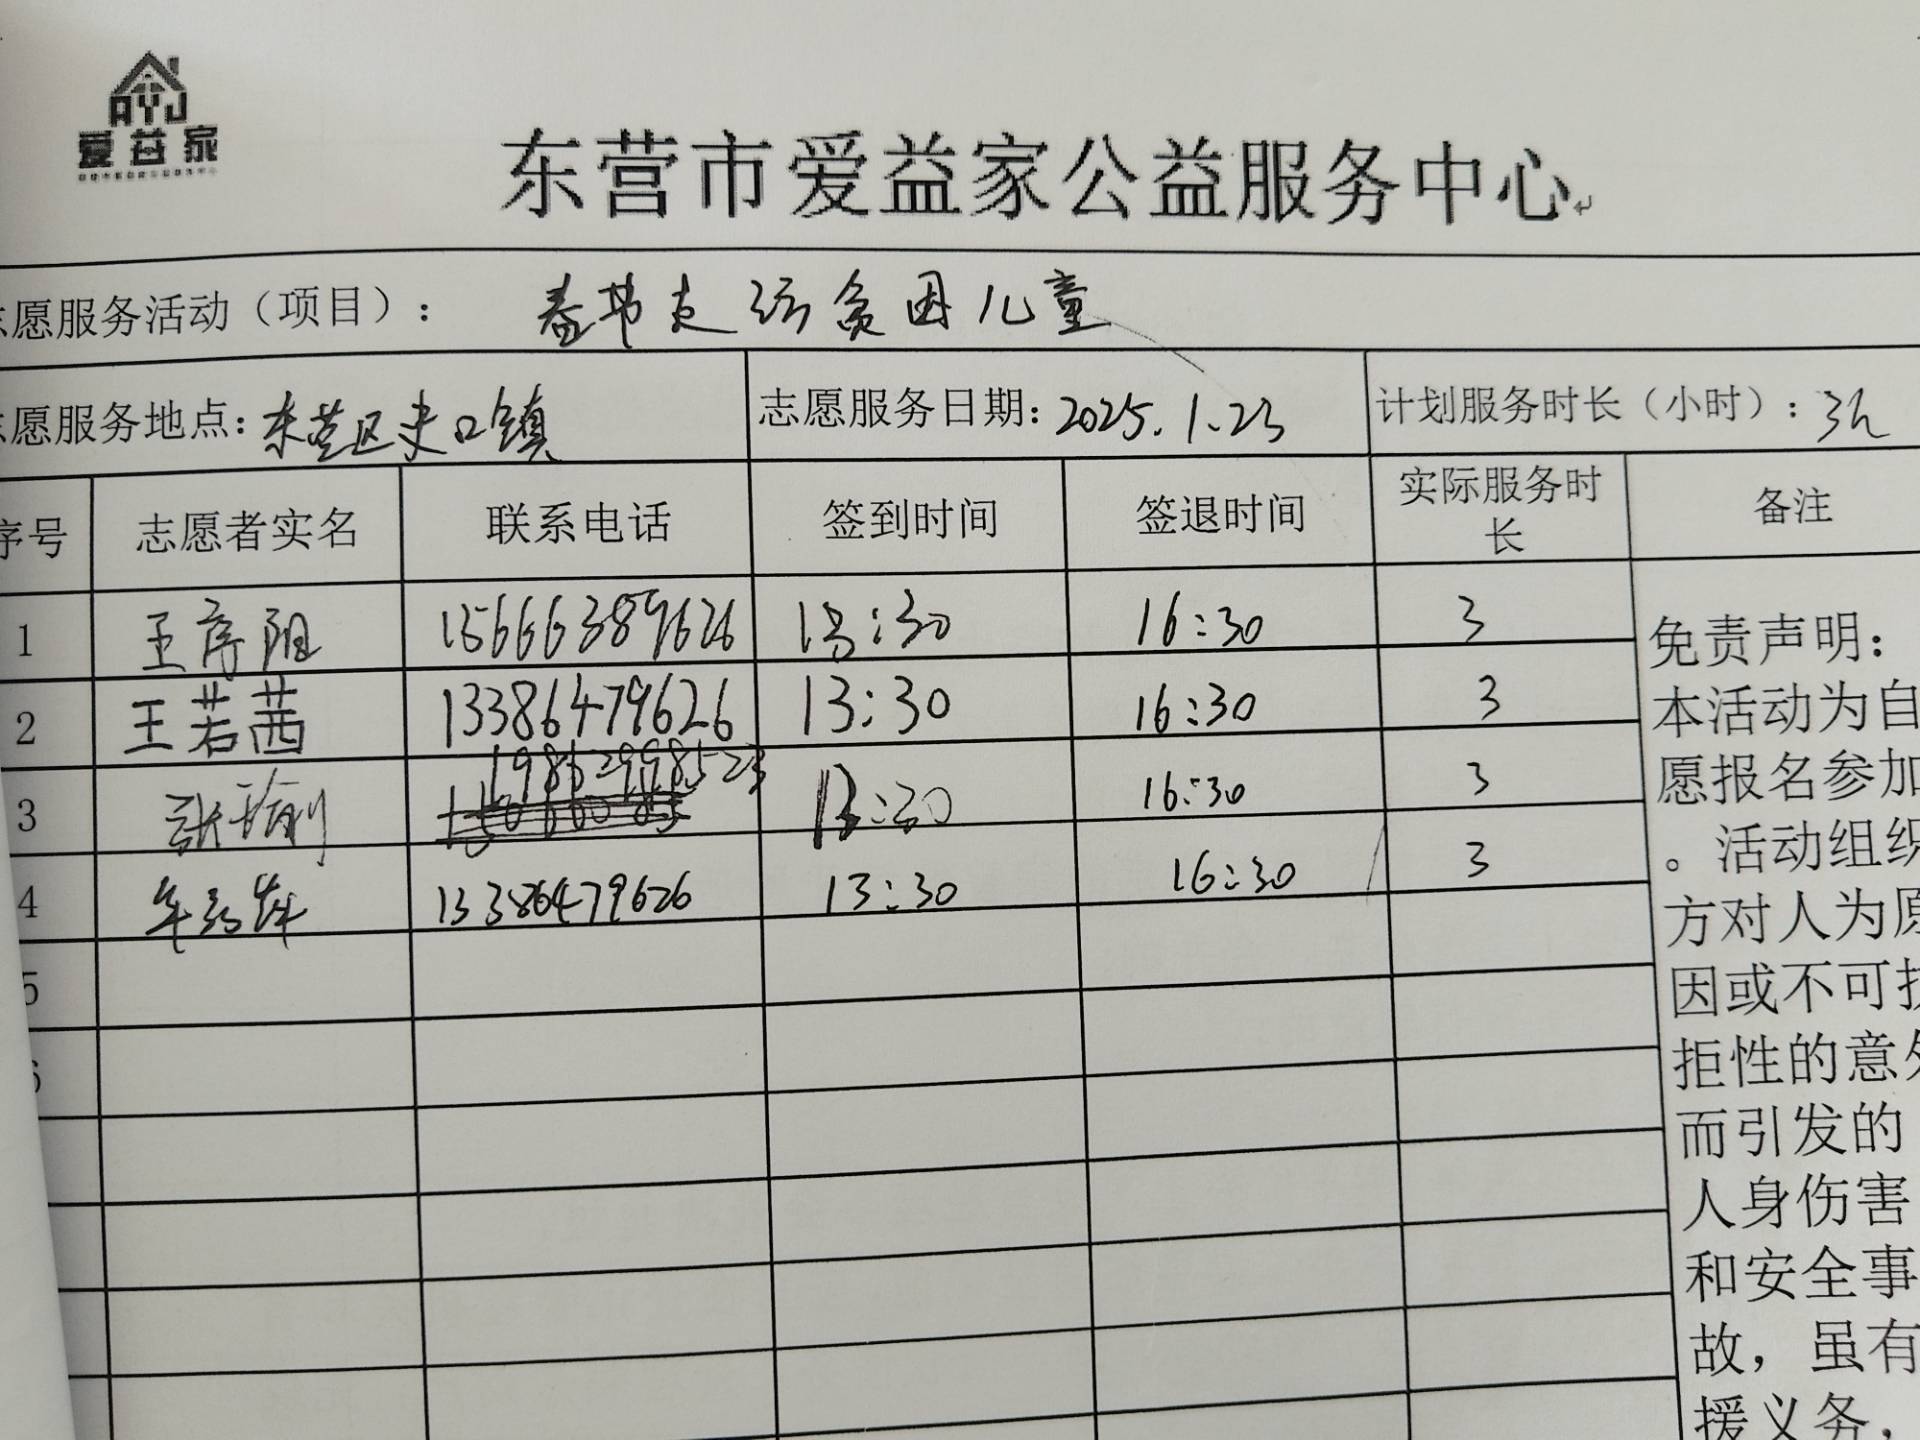 AYJ
爱益家
东营市爱益家公益服务中心
志愿服务活动（项目）： 春节走访贫困儿童
志愿服务地点：东营区史口镇 志愿服务日期：2025.1.23 计划服务时长（小时）：3h
序号 志愿者实名 联系电话 签到时间 签退时间 实际服务时长 备注
1 王序阳 15666389626 13:30 16:30 3
2 王若茜 13386479626 13:30 16:30 3
3 张 19862998523 13:30 16:30 3
4 13386479626 13:30 16:30 3
5
6
免责声明：
本活动为自
愿报名参加
。活动组织
方对人为原
因或不可抗
拒性的意外
而引发的
人身伤害
和安全事
故，虽有
援义务，